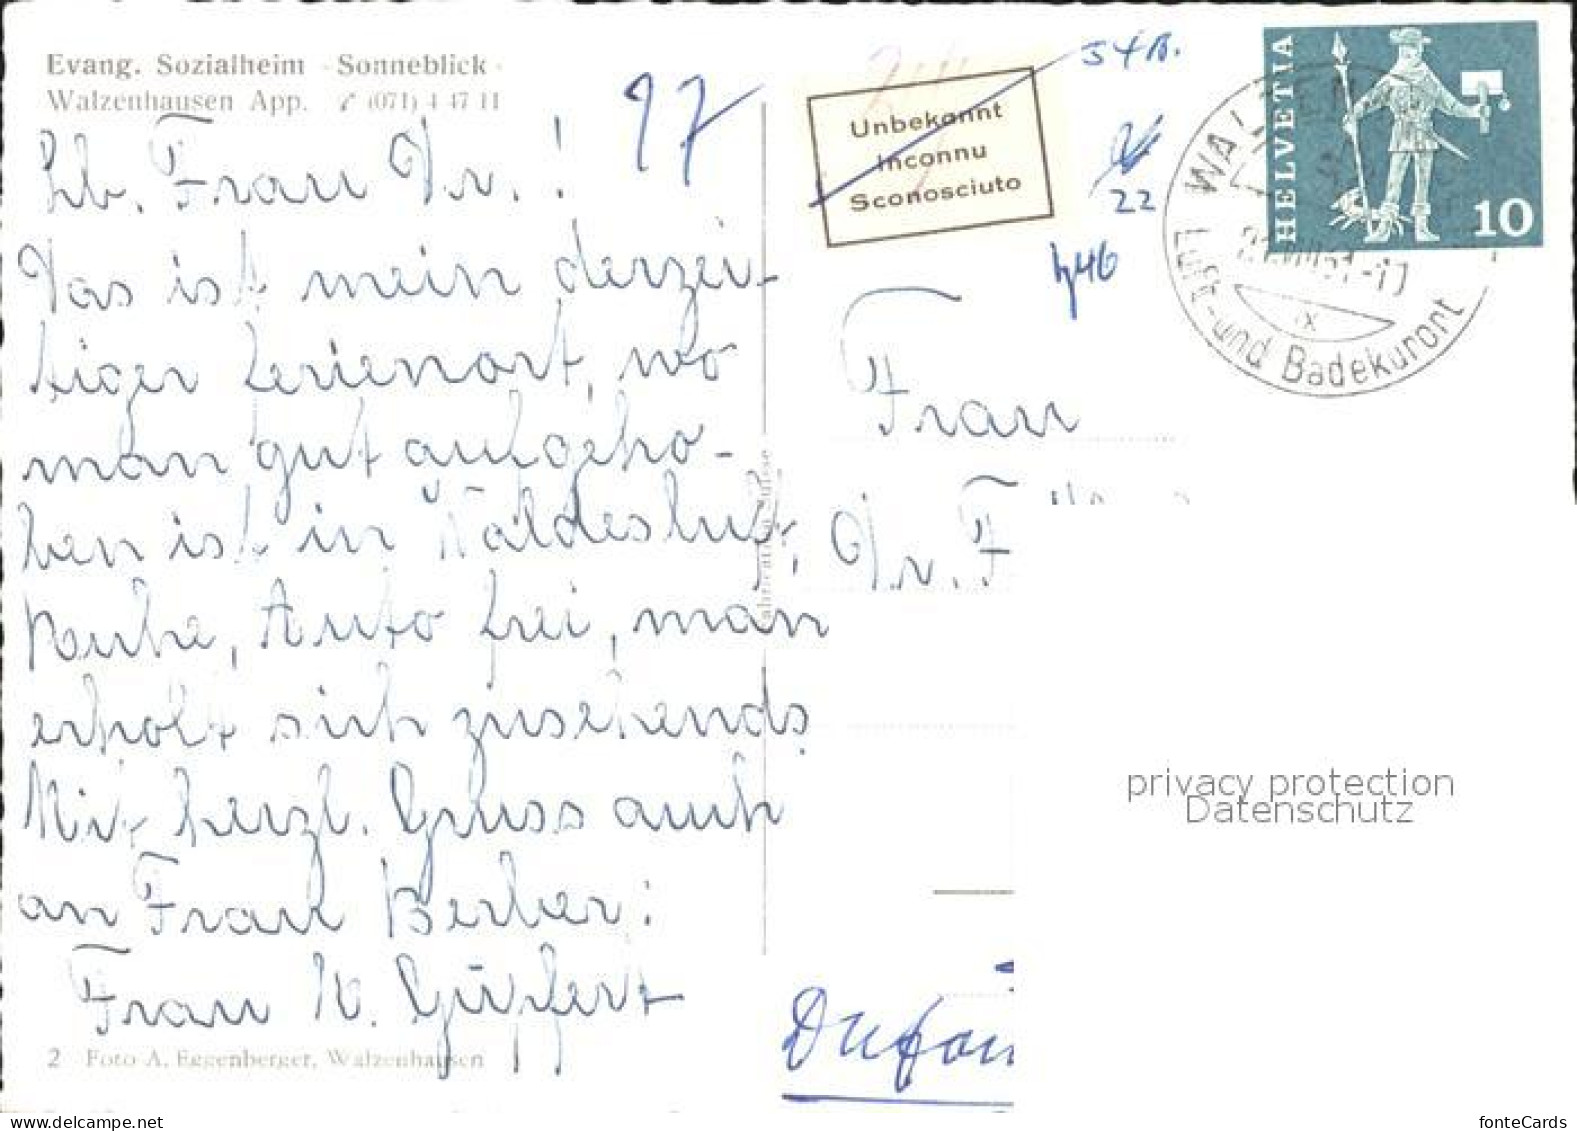 Evang. Sozialheim - Sonneblick -
Walzenhausen App. ✆ (071) 4 47 11
Lb. Frau Dr. !
Das ist mein derzei-
tiger Ferienort, wo
man gut aufgeho-
ben ist in Waldesluft,
Ruhe, Auto frei, man
erholt sich zusehends.
Mit herzl. Gruss auch
an Frau Berber:
Frau W. Güpfert
2 Foto A. Eggenberger, Walzenhausen
97
Unbekannt
Inconnu
Sconosciuto
54B.
22
h46
HELVETIA
10
Luft- und Badekurort
IX
Frau
Dr. F
Dufour
privacy protection
Datenschutz
fonteCards